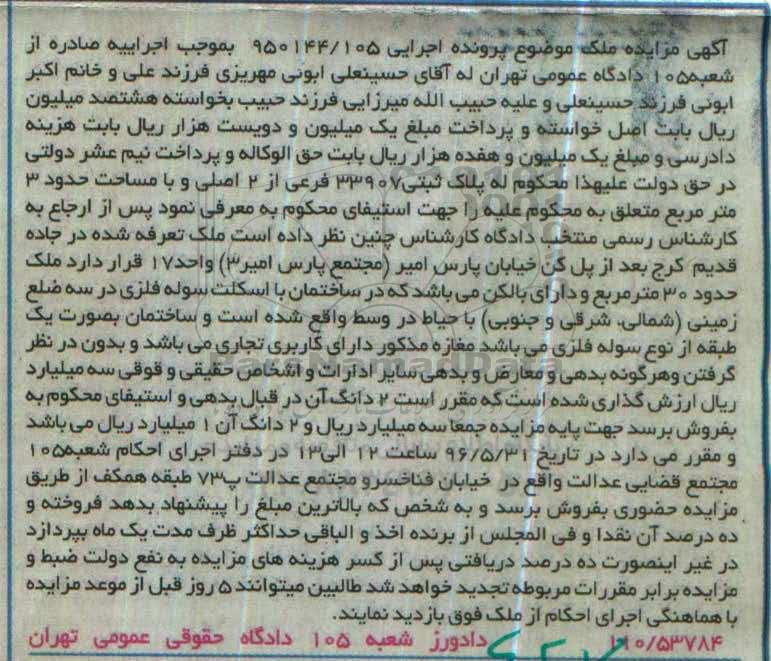 آگهی مزایده ملک موضوع پرونده اجرایی ۹۵۰۱۴۴/۱۰۵ بموجب اجراییه صادره از
شعبه۱۰۵ دادگاه عمومی تهران له آقای حسینعلی ابونی مهریزی فرزند علی و خانم اکبر
ابونی فرزند حسینعلی و علیه حبیب الله میرزایی فرزند حبیب بخواسته هشتصد میلیون
ریال بابت اصل خواسته و پرداخت مبلغ یک میلیون و دویست هزار ریال بابت هزینه
دادرسی و مبلغ یک میلیون و هفده هزار ریال بابت حق الوکاله و پرداخت نیم عشر دولتی
در حق دولت علیهذا محکوم له پلاک ثبتی۳۳۹۰۷ فرعی از ۲ اصلی و با مساحت حدود ۳
متر مربع متعلق به محکوم علیه را جهت استیفای محکوم به معرفی نمود پس از ارجاع به
کارشناس رسمی منتخب دادگاه کارشناس چنین نظر داده است ملک تعرفه شده در جاده
قدیم کرج بعد از پل کن خیابان پارس امیر (مجتمع پارس امیر۳) واحد۱۷ قرار دارد ملک
حدود ۳۰ مترمربع و دارای بالکن می باشد که در ساختمان با اسکلت سوله فلزی در سه ضلع
زمینی (شمالی، شرقی و جنوبی) با حیاط در وسط واقع شده است و ساختمان بصورت یک
طبقه از نوع سوله فلزی می باشد مغازه مذکور دارای کاربری تجاری می باشد و بدون در نظر
گرفتن وهرگونه بدهی و معارض و بدهی سایر ادارات و اشخاص حقیقی و قوقی سه میلیارد
ریال ارزش گذاری شده است که مقرر است ۲ دانگ آن در قبال بدهی و استیفای محکوم به
بفروش برسد جهت پایه مزایده جمعا سه میلیارد ریال و ۲ دانگ آن ۱ میلیارد ریال می باشد
و مقرر می دارد در تاریخ ۹۶/۵/۳۱ ساعت ۱۲ الی۱۳ در دفتر اجرای احکام شعبه۱۰۵
مجتمع قضایی عدالت واقع در خیابان فناخسرو مجتمع عدالت پ۷۳ طبقه همکف از طریق
مزایده حضوری بفروش برسد و به شخص که بالاترین مبلغ را پیشنهاد بدهد فروخته و
ده درصد آن نقدا و فی المجلس از برنده اخذ و الباقی حداکثر ظرف مدت یک ماه بپردازد
در غیر اینصورت ده درصد دریافتی پس از کسر هزینه های مزایده به نفع دولت ضبط و
مزایده برابر مقررات مربوطه تجدید خواهد شد طالبین میتوانند ۵ روز قبل از موعد مزایده
با هماهنگی اجرای احکام از ملک فوق بازدید نمایند.
۱۱۰/۵۳۷۸۴ دادورز شعبه ۱۰۵ دادگاه حقوقی عمومی تهران